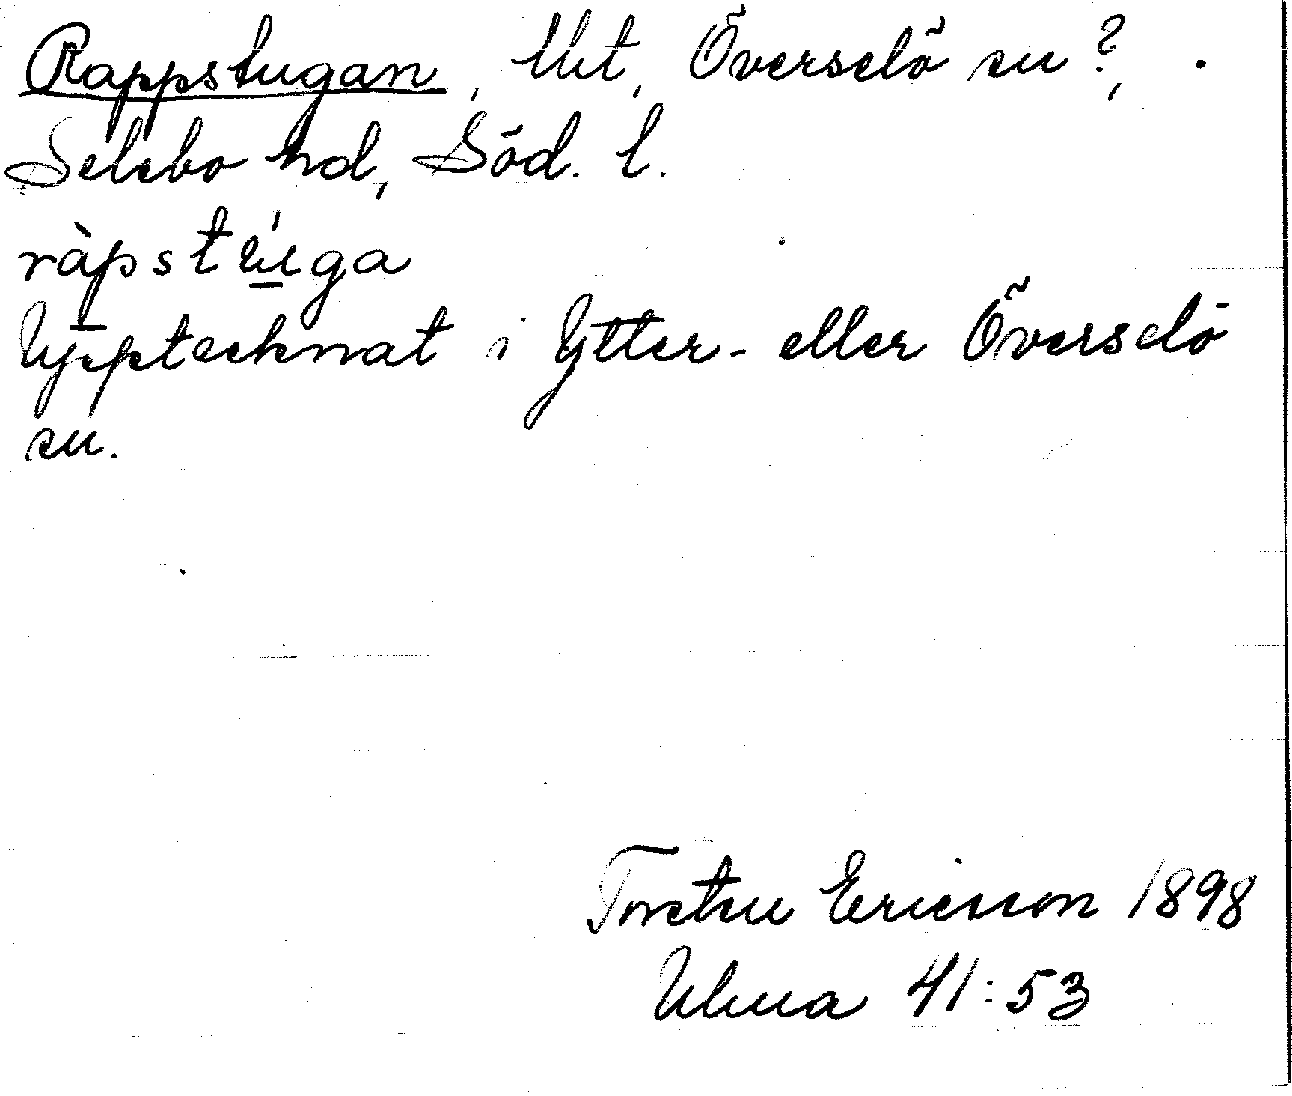 Rappstugan, Utt, Överselö sn?,
Selebo hd, Söd. l.
ràpstúga
Upptecknat i Ytter- eller Överselö
sn.
Torsten Ericsson 1898
Ulma 41:53